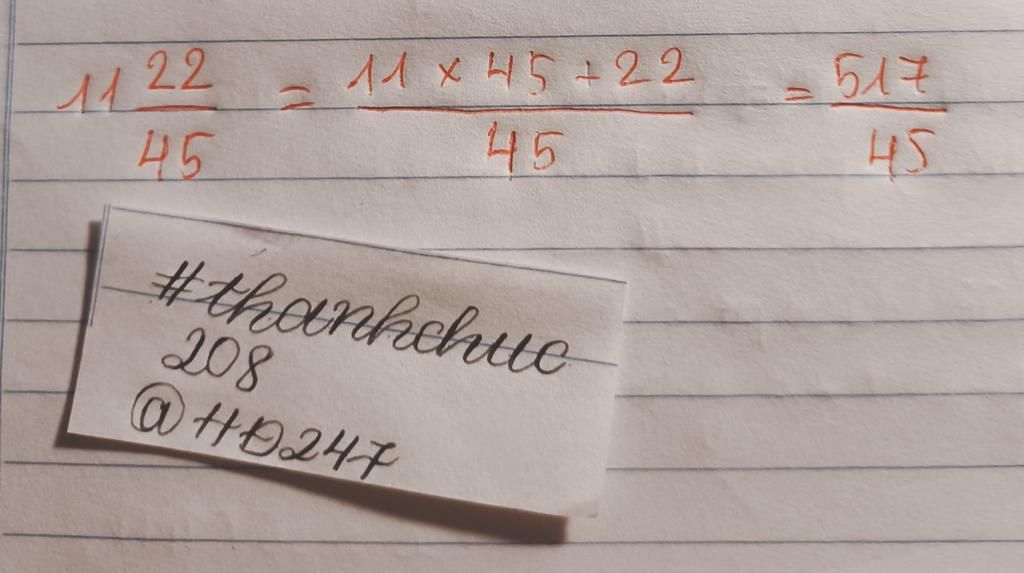 11 22/45 = 11 × 45 + 22/45 = 517/45
#thanhchuc
208
@HĐ247